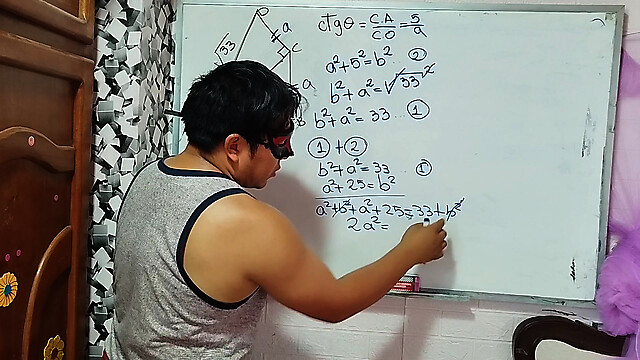 D
√33
a
C
a
B
ctgθ = C.A/CO = 5/a
a² + 5² = b² ... ②
b² + a² = √33²
b² + a² = 33 ... ①
① + ②
b² + a² = 33 ①
a² + 25 = b²
a² + b² + a² + 25 = 33 + b²
2a² =